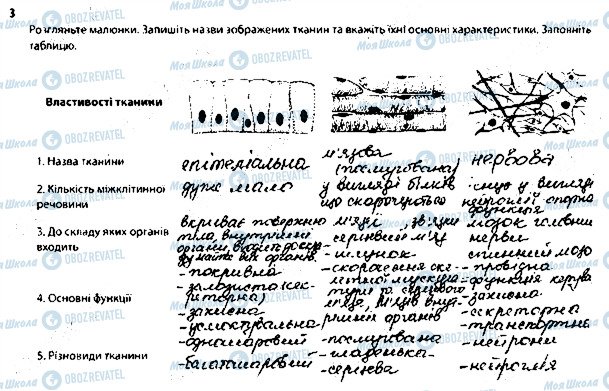 3
Розгляньте малюнки. Запишіть назви зображених тканин та вкажіть їхні основні характеристики. Заповніть
таблицю.
Властивості тканини
1. Назва тканини
епітеліальна
м'язова
(посмугована)
нервова
2. Кількість міжклітинної
речовини
дуже мало
у вигляді білків
що скорочуються
є нещо у вигляді
нейроглії опорна
функція
3. До складу яких органів
входить
вкриває поверхню
тіла, внутрішні
органи, входить до скла-
ду майже всіх органів
м'язи,
серцевий м'яз
- шлунок
мозок головний
нерви
спинний мозок
4. Основні функції
- покривна
- залозиста (сек-
реторна)
- захисна
- усмоктувальна
- скорочення ске-
летної мускула-
тури та серцевого
м'яза, м'язів внут-
рішніх органів
- провідна
- функція
- захисна
- секреторна
- транспортна
5. Різновиди тканини
- одношаровий
- багатошаровий
- посмугована
- гладенька
- серцева
- нейрони
- нейроглія
Моя Школа OBOZREVATEL